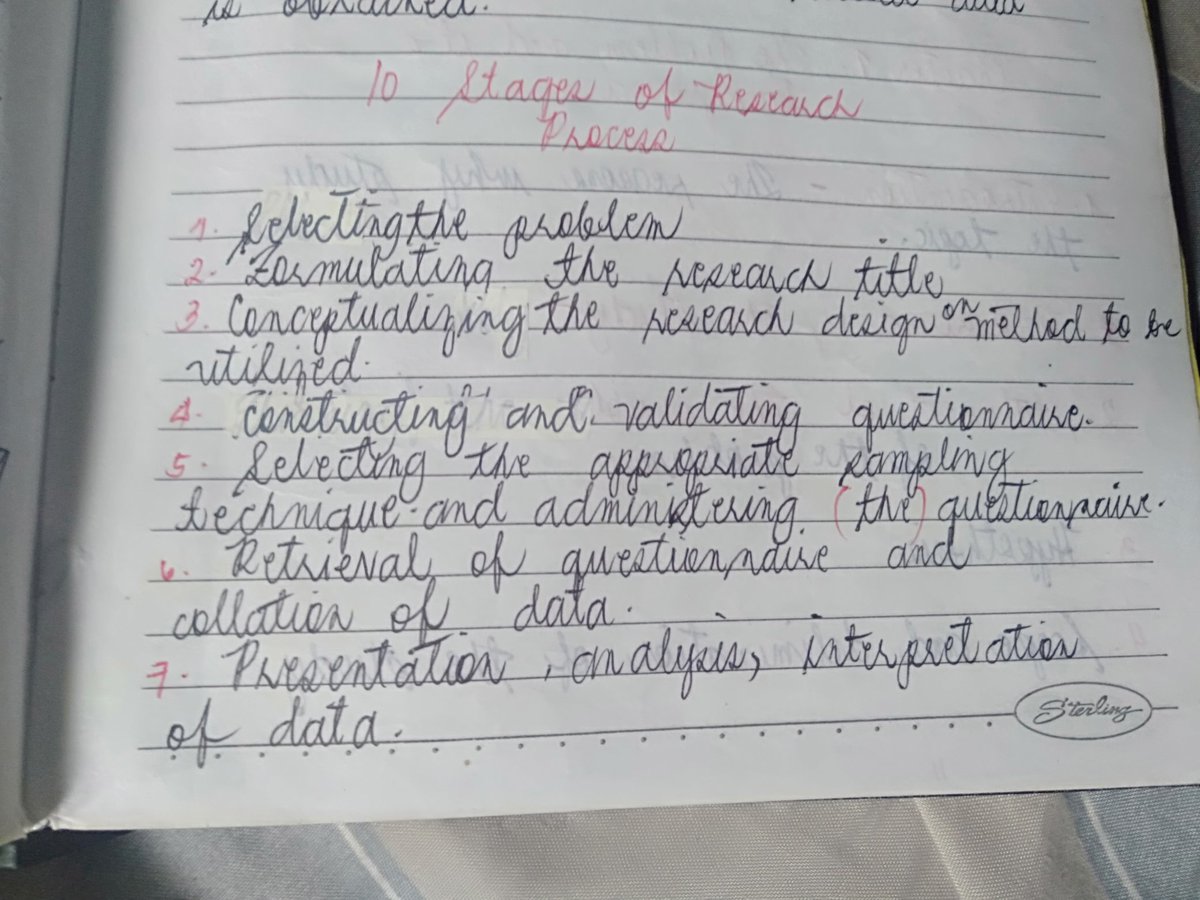 is obtained.
data
10 Stages of Research
Process
1. Selecting the problem
2. Formulating the research title
3. Conceptualizing the research design or method to be
utilized.
4. Constructing and validating questionnaire.
5. Selecting the appropriate sampling
technique and administering (the) questionnaire.
6. Retrieval of questionnaire and
collation of data.
7. Presentation, analysis, interpretation
of data.
Sterling